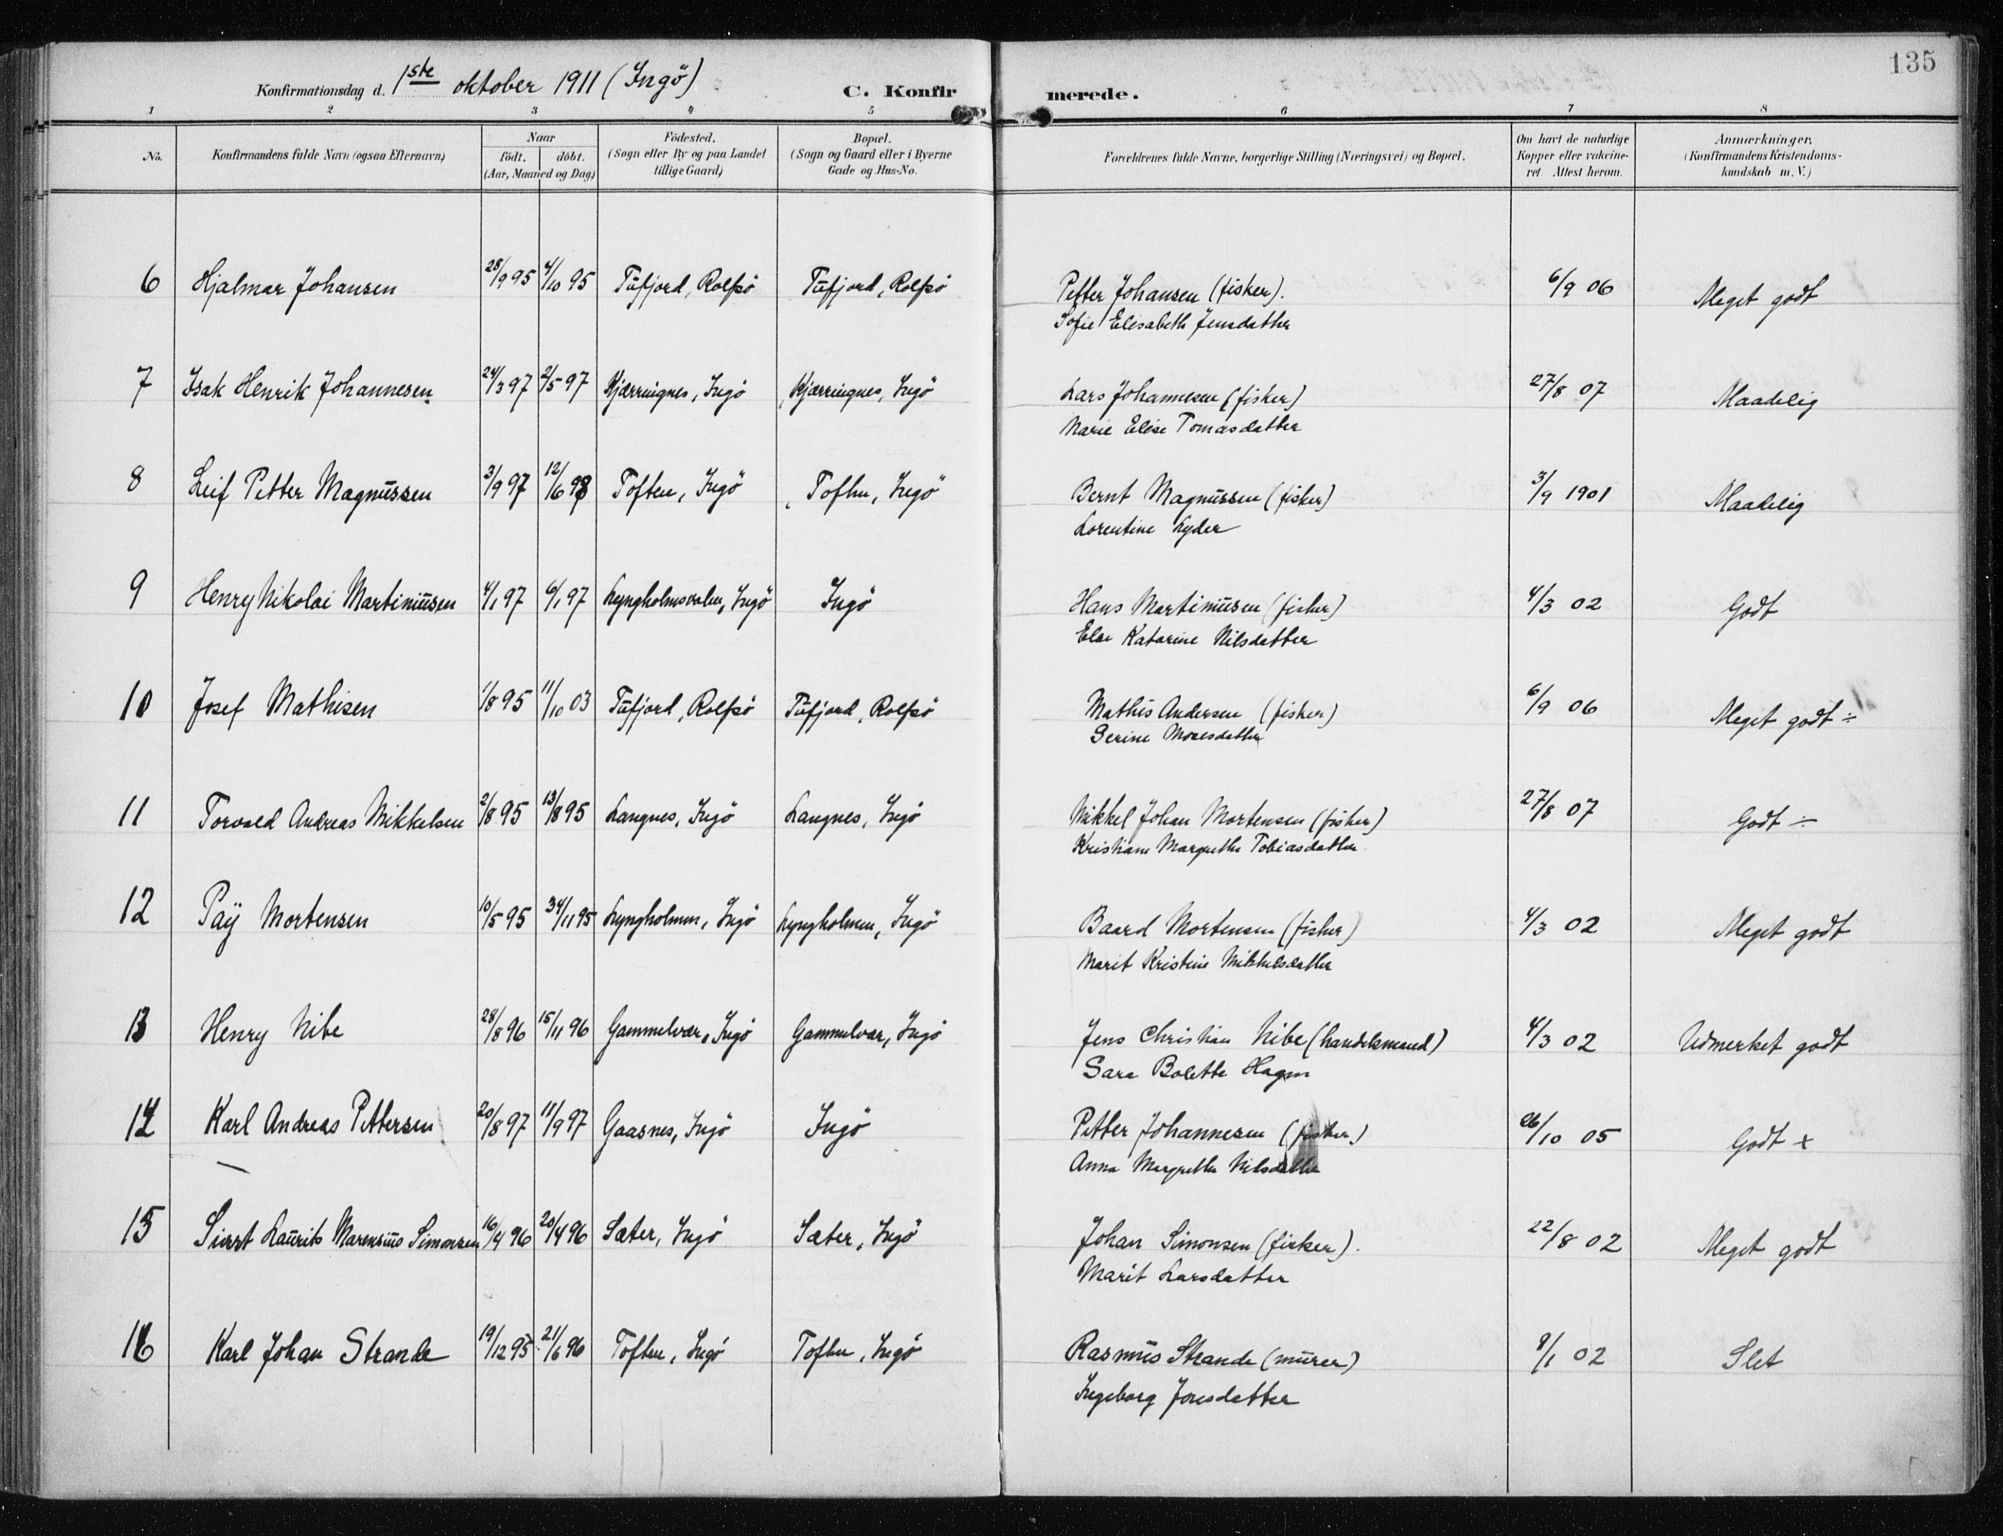 135
Konfirmationsdag d. 1ste oktober 1911 (Ingö) C. Konfirmerede.
1 2 3 4 5 6 7 8
No. Konfirmandens fulde Navn (ogsaa Efternavn) Naar födt. döbt. (Aar, Maaned og Dag) Födested. (Sogn eller By og paa Landet tillige Gaard) Bopæl. (Sogn og Gaard eller i Byerne Gade og Hus-No. Forældrenes fulde Navne, borgerlige Stilling (Næringsvei) og Bopæl. Om havt de naturlige Kopper eller vakcineret Attest herom. Anmærkninger. (Konfirmandens Kristendomskundskab m. V.)
6 Hjalmar Johansen 28/9 95 4/10 95 Tufjord, Rolfsö Tufjord, Rolfsö Petter Johansen (fisker). 6/9 06 Meget godt
Sofie Elisabeth Jensdatter
7 Isak Henrik Johannesen 24/3 97 2/5 97 Kjærringnes, Ingö Kjærringnes, Ingö Lars Johannesen (fisker) 27/8 07 Maadelig
Marie Elise Tomasdatter
8 Leif Petter Magnussen 3/9 97 12/6 98 Toften, Ingö Toften, Ingö Bernt Magnussen (fisker) 3/9 1901 Maadelig
Lorentine Lyder
9 Henry Nikolai Martinusen 4/1 97 6/1 97 Lyngholmsvalen, Ingö Ingö Hans Martinusen (fisker) 4/3 02 Godt
Else Katarine Nilsdatter
10 Josef Mathisen 1/8 95 11/10 03 Tufjord, Rolfsö Tufjord, Rolfsö Mathis Andersen (fisker) 6/9 06 Meget godt ÷
Serine Mosesdatter
11 Torvald Andreas Mikkelsen 2/8 95 13/8 95 Langnes, Ingö Langnes, Ingö Mikkel Johan Mortensen (fisker) 27/8 07 Godt ÷
Kristiane Margrethe Tobiasdatter
12 Paÿ Mortensen 10/5 95 /11 95 Lyngholmen, Ingö Lyngholmen, Ingö Baard Mortensen (fisker) 4/3 02 Meget godt
Marit Kristine Mikkelsdatter
13 Henry Nibe 28/8 96 15/11 96 Gammelvær, Ingö Gammelvær, Ingö Jens Christian Nibe (handelsmand) 4/3 02 Udmerket godt
Sara Bolette Hagen
14 Karl Andreas Pettersen 20/8 97 11/9 97 Gaasnes, Ingö Ingö Petter Johannesen (fisker) 26/10 05 Godt +
Anna Margrethe Nilsdatter
15 Sivert Laurits Marensius Simonsen 16/4 96 20/4 96 Sæter, Ingö Sæter, Ingö Johan Simonsen (fisker). 22/8 02 Meget godt
Marit Larsdatter
16 Karl Johan Strande 19/12 95 21/6 96 Toften, Ingö Toften, Ingö Rasmus Strande (murer) 8/1 02 Slet
Ingeborg Jonsdatter